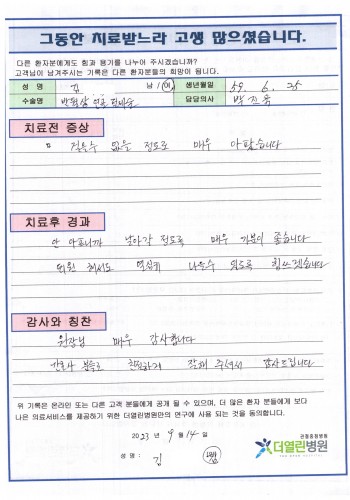 그동안 치료받느라 고생 많으셨습니다.
다른 환자분에게도 힘과 용기를 나누어 주시겠습니까?
고객님이 남겨주시는 기록은 다른 환자분들의 희망이 됩니다.
성 명 김 남 / 여 생년월일 59. 6. 25
수술명 반월상 연골 담당의사
치료전 증상
걸을수 없을 정도로 매우 아팠습니다
치료후 경과
안 아프니까 날아갈 정도로 매우 기분이 좋습니다
퇴원 해서도 열심히 나을수 있도록 힘쓰겠습니다
감사와 칭찬
원장님 매우 감사합니다
간호사 분들도 친절하게 잘해 주셔서 감사드립니다
위 기록은 온라인 또는 다른 고객 분들에게 공개 될 수 있으며, 더 많은 환자 분들에게 보다
나은 의료서비스를 제공하기 위한 더열린병원만의 연구에 사용 되는 것을 동의합니다.
2023 년 9 월 14 일
성 명 : 김
관절중점병원
더열린병원